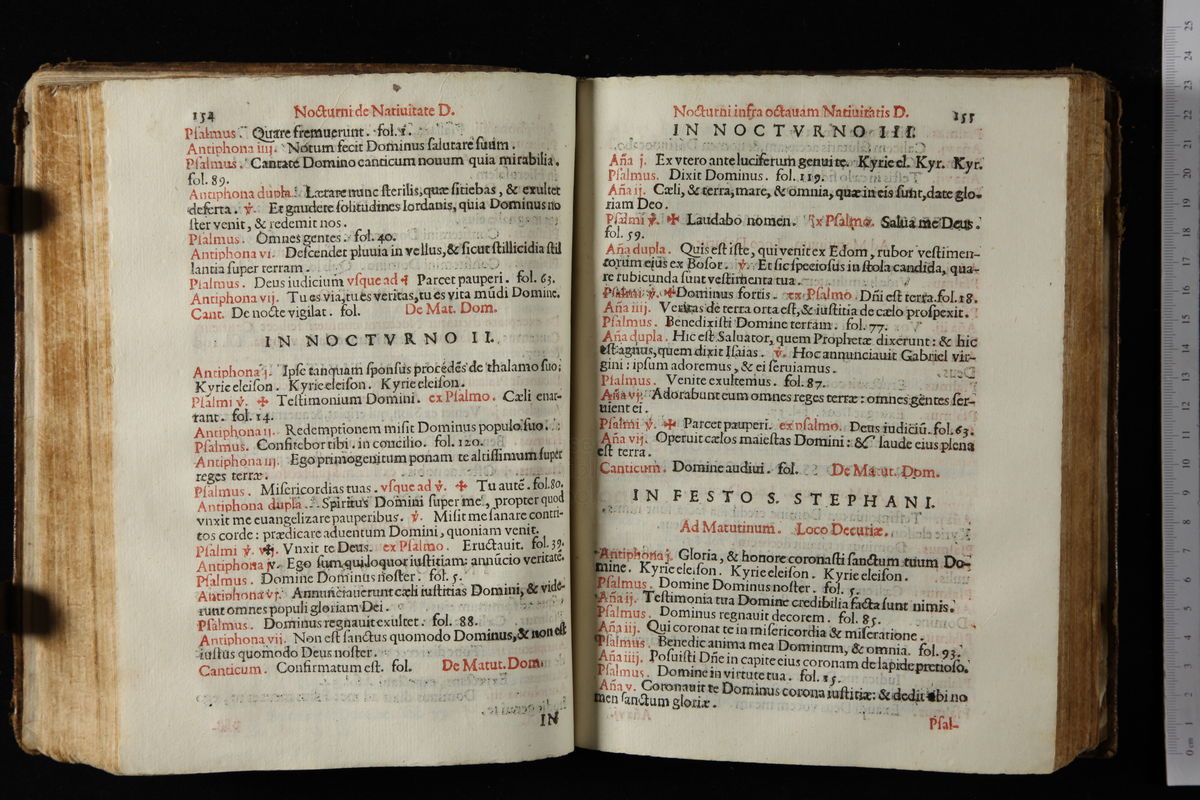 154 Nocturni de Natiuitate D.
Psalmus. Quare fremuerunt. fol. 1.
Antiphona iiij. Notum fecit Dominus salutare suum.
Psalmus. Cantate Domino canticum nouum quia mirabilia.
fol. 89.
Antiphona dupla. Lætare nunc sterilis, quæ sitiebas, & exultet
deserta. ℣. Et gaudete solitudines Iordanis, quia Dominus no
ster venit, & redemit nos.
Psalmus. Omnes gentes. fol. 40.
Antiphona vi. Descendet pluuia in vellus, & sicut stillicidia stil
lantia super terram.
Psalmus. Deus iudicium vsque ad Parcet pauperi. fol. 63.
Antiphona vij. Tu es via, tu es veritas, tu es vita mūdi Domine.
Cant. De nocte vigilat. fol. De Mat. Dom.
IN NOCTVRNO II.
Antiphona j. Ipse tanquam sponsus procedēs de thalamo suo;
Kyrie eleison. Kyrie eleison. Kyrie eleison.
Psalmi ℣. ✠ Testimonium Domini. ex Psalmo. Cæli enar-
rant. fol. 14.
Antiphona ij. Redemptionem misit Dominus populo suo.
Psalmus. Confitebor tibi. in concilio. fol. 120.
Antiphona iij. Ego primogenitum ponam te altissimum super
reges terræ.
Psalmus. Misericordias tuas. vsque ad ℣. ✠ Tu autē. fol. 80.
Antiphona dupla. Spiritus Domini super me, propter quod
vnxit me euangelizare pauperibus. ℣. Misit me sanare contri-
tos corde: prædicare aduentum Domini, quoniam venit.
Psalmi ℣. ✠ Vnxit te Deus. ex Psalmo. Eructauit. fol. 39.
Antiphona v. Ego sum, qui loquor iustitiam: annūcio veritatē.
Psalmus. Domine Dominus noster. fol. 5.
Antiphona vj. Annunciauerunt cæli iustitias Domini, & vide-
runt omnes populi gloriam Dei.
Psalmus. Dominus regnauit exultet. fol. 88.
Antiphona vii. Non est sanctus quomodo Dominus, & non est
iustus quomodo Deus noster.
Canticum. Confirmatum est. fol. De Matut. Dom.
IN
Nocturni infra octauam Natiuitatis D. 155
IN NOCTVRNO III.
Aña j. Ex vtero ante luciferum genui te. Kyrie el. Kyr. Kyr.
Psalmus. Dixit Dominus. fol. 119.
Aña ij. Cæli, & terra, mare, & omnia, quæ in eis sunt, date glo-
riam Deo.
Psalmi ℣. ✠ Laudabo nomen. Ex Psalmo. Salua me Deus.
fol. 59.
Aña dupla. Quis est iste, qui venit ex Edom, rubor vestimen-
torum eius ex Bosor. ℣. Et sic speciosus in stola candida, qua-
re rubicunda sunt vestimenta tua.
Psalmi ℣. ✠ Dominus fortis. ex Psalmo. Dñi est terra. fol. 18.
Aña iiij. Veritas de terra orta est, & iustitia de cælo prospexit.
Psalmus. Benedixisti Domine terram. fol. 77.
Aña dupla. Hic est Saluator, quem Prophetæ dixerunt: & hic
est agnus, quem dixit Isaias. ℣. Hoc annunciauit Gabriel vir-
gini: ipsum adoremus, & ei seruiamus.
Psalmus. Venite exultemus. fol. 87.
Aña vj. Adorabunt eum omnes reges terræ: omnes gentes ser-
uient ei.
Psalmi ℣. ✠ Parcet pauperi. ex psalmo. Deus iudiciū. fol. 63.
Aña vij. Operuit cælos maiestas Domini: & laude eius plena
est terra.
Canticum. Domine audiui. fol. De Matut. Dom.
IN FESTO S. STEPHANI.
Ad Matutinum. Loco Decuriæ.
Antiphona j. Gloria, & honore coronasti sanctum tuum Do-
mine. Kyrie eleison. Kyrie eleison. Kyrie eleison.
Psalmus. Domine Dominus noster. fol. 5.
Aña ij. Testimonia tua Domine credibilia facta sunt nimis.
Psalmus. Dominus regnauit decorem. fol. 85.
Aña iij. Qui coronat te in misericordia & miseratione.
Psalmus. Benedic anima mea Dominum, & omnia. fol. 93.
Aña iiij. Posuisti Dñe in capite eius coronam de lapide pretioso.
Psalmus. Domine in virtute tua. fol. 15.
Aña v. Coronauit te Dominus corona iustitiæ: & dedit tibi no
men sanctum gloriæ.
Psal-